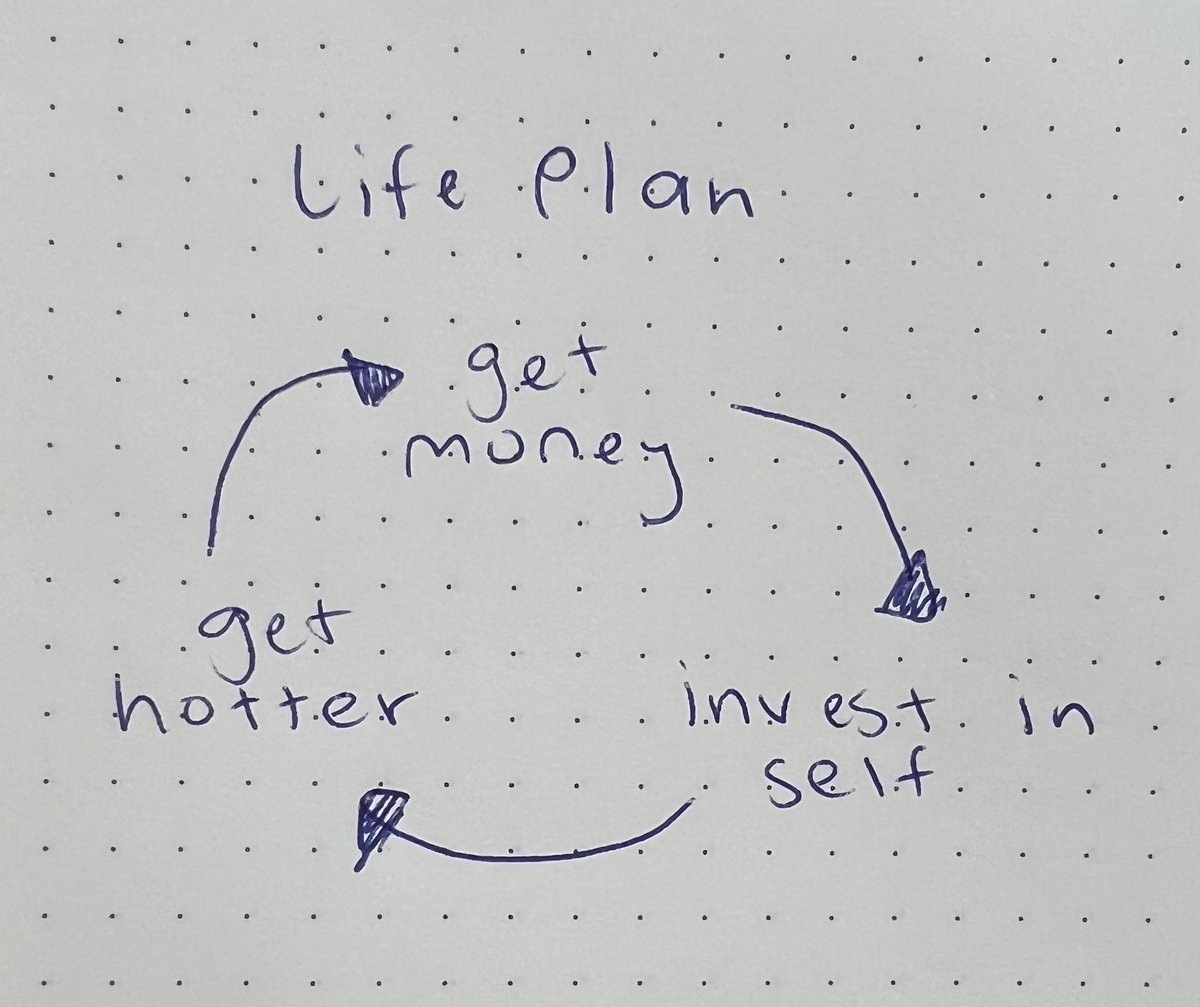 Life Plan
get
money
get
hotter
invest in
self